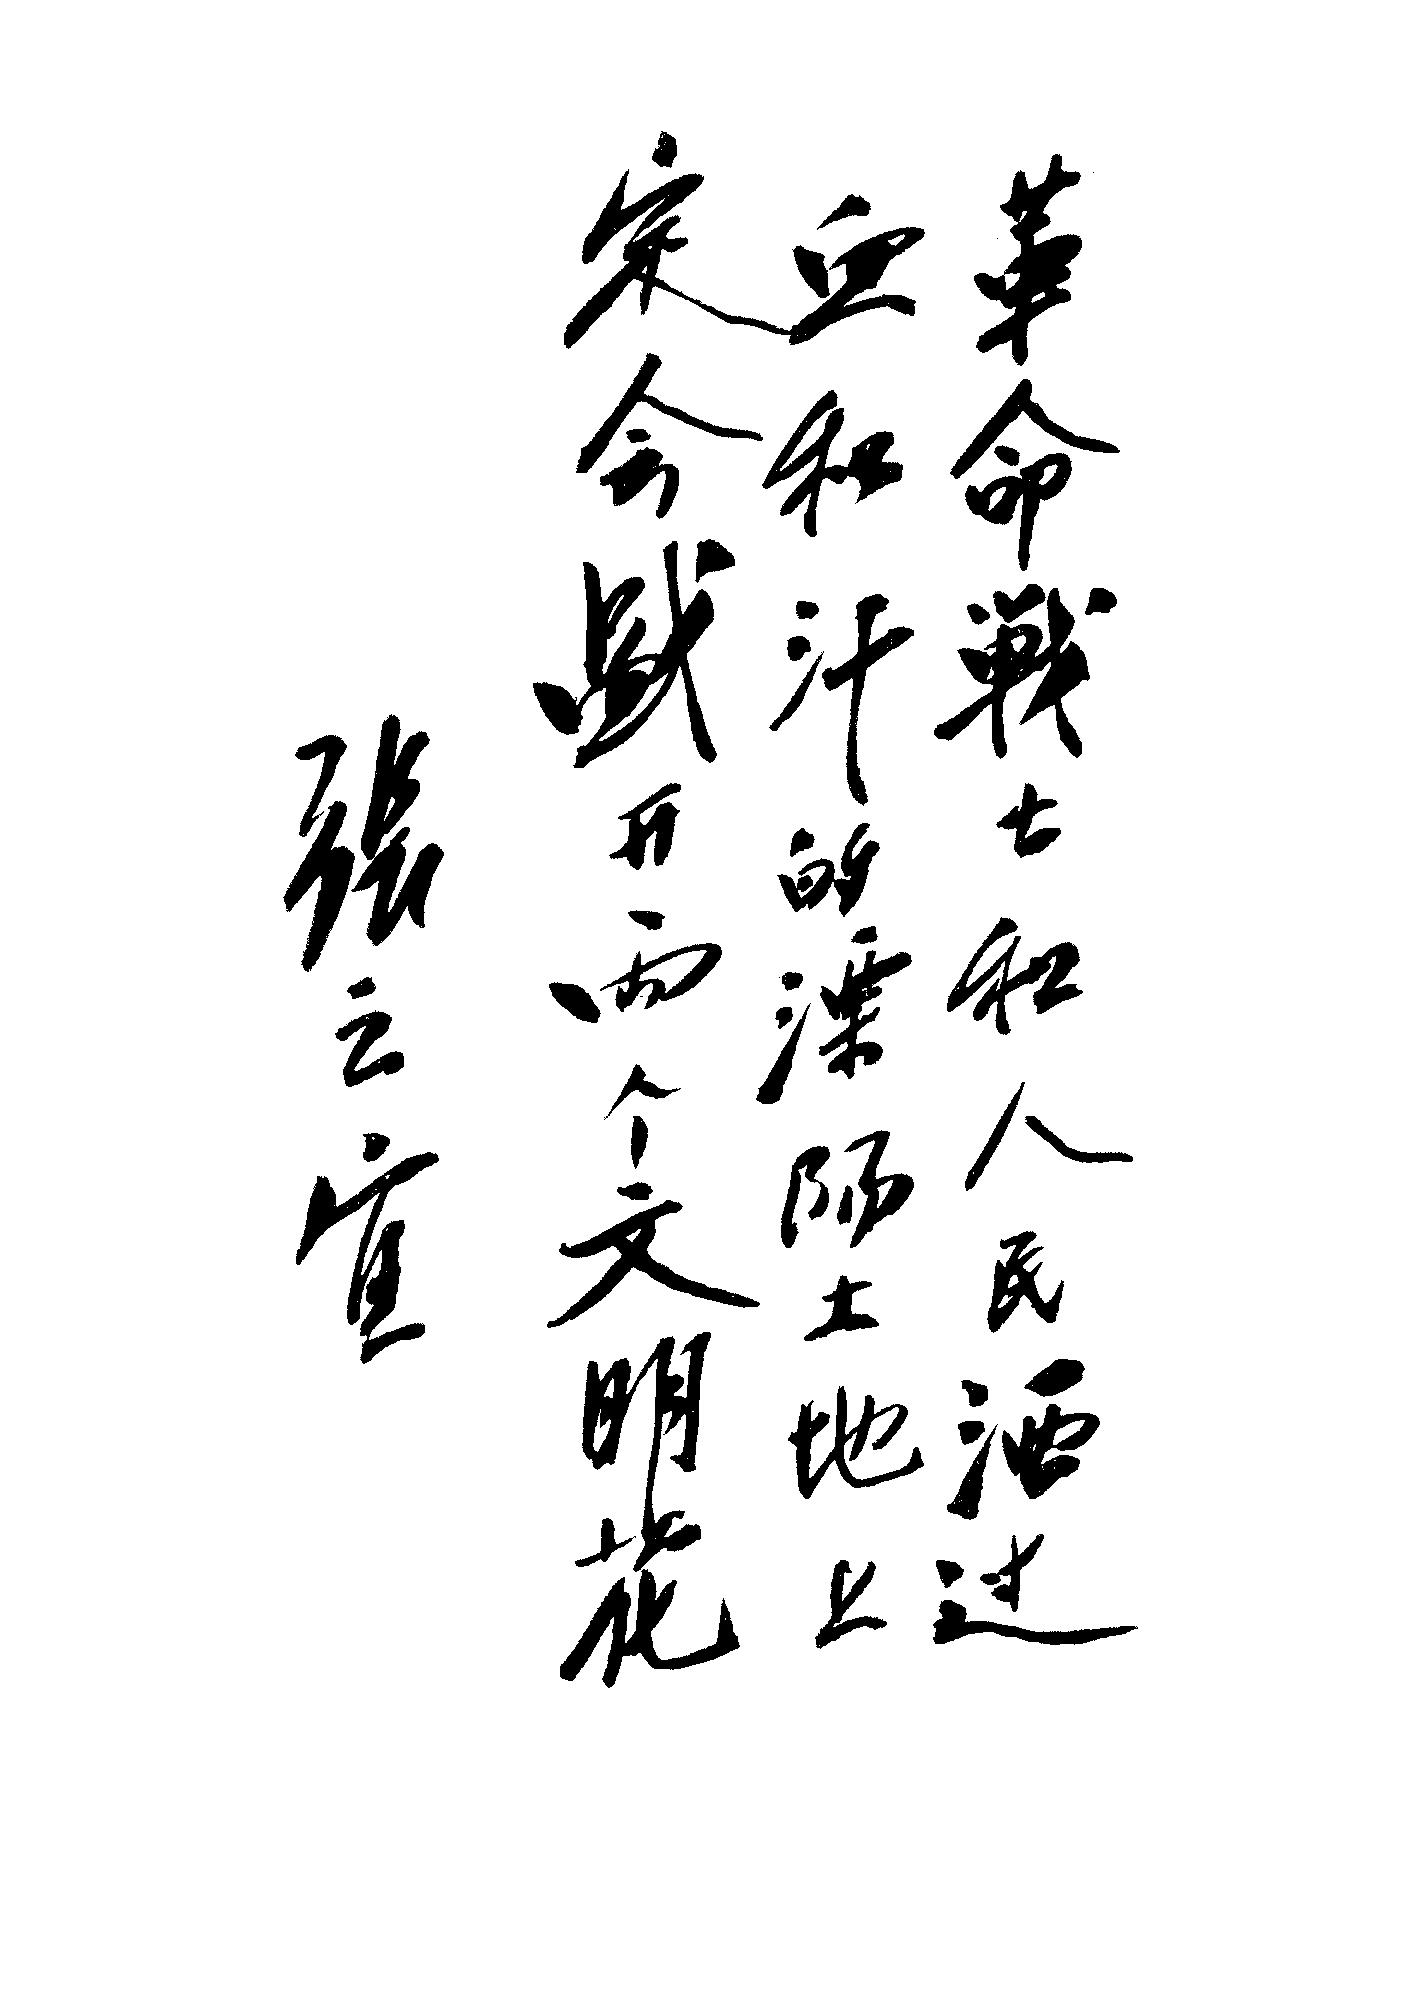 革命戦士和人民洒过
血和汗的溧陽土地上
定会盛开两个文明花
張之宜